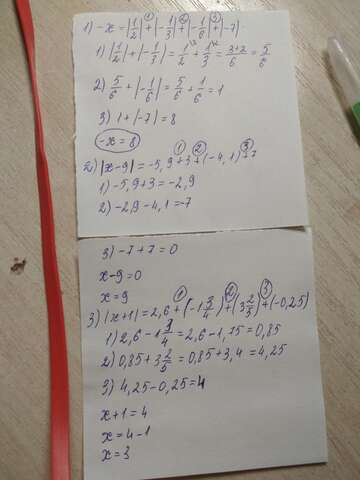 1) -x = |1/2| + |-1/3| + |-1/6| + |-7|
① ② ③
1) |1/2| + |-1/3| = 1/2 + 1/3 = (3+2)/6 = 5/6
2) 5/6 + |-1/6| = 5/6 + 1/6 = 1
3) 1 + |-7| = 8
-x = 8
① ② ③
2) |x-9| = -5,9+3+(-4,1)+7
1) -5,9+3 = -2,9
2) -2,9-4,1 = -7
3) -7+7=0
x-9=0
x=9
① ② ③
3) |x+1| = 2,6 + (-1 3/4) + (3 2/5) + (-0,25)
1) 2,6 - 1 3/4 = 2,6 - 1,75 = 0,85
2) 0,85 + 3 2/5 = 0,85 + 3,4 = 4,25
3) 4,25-0,25=4
x+1=4
x=4-1
x=3